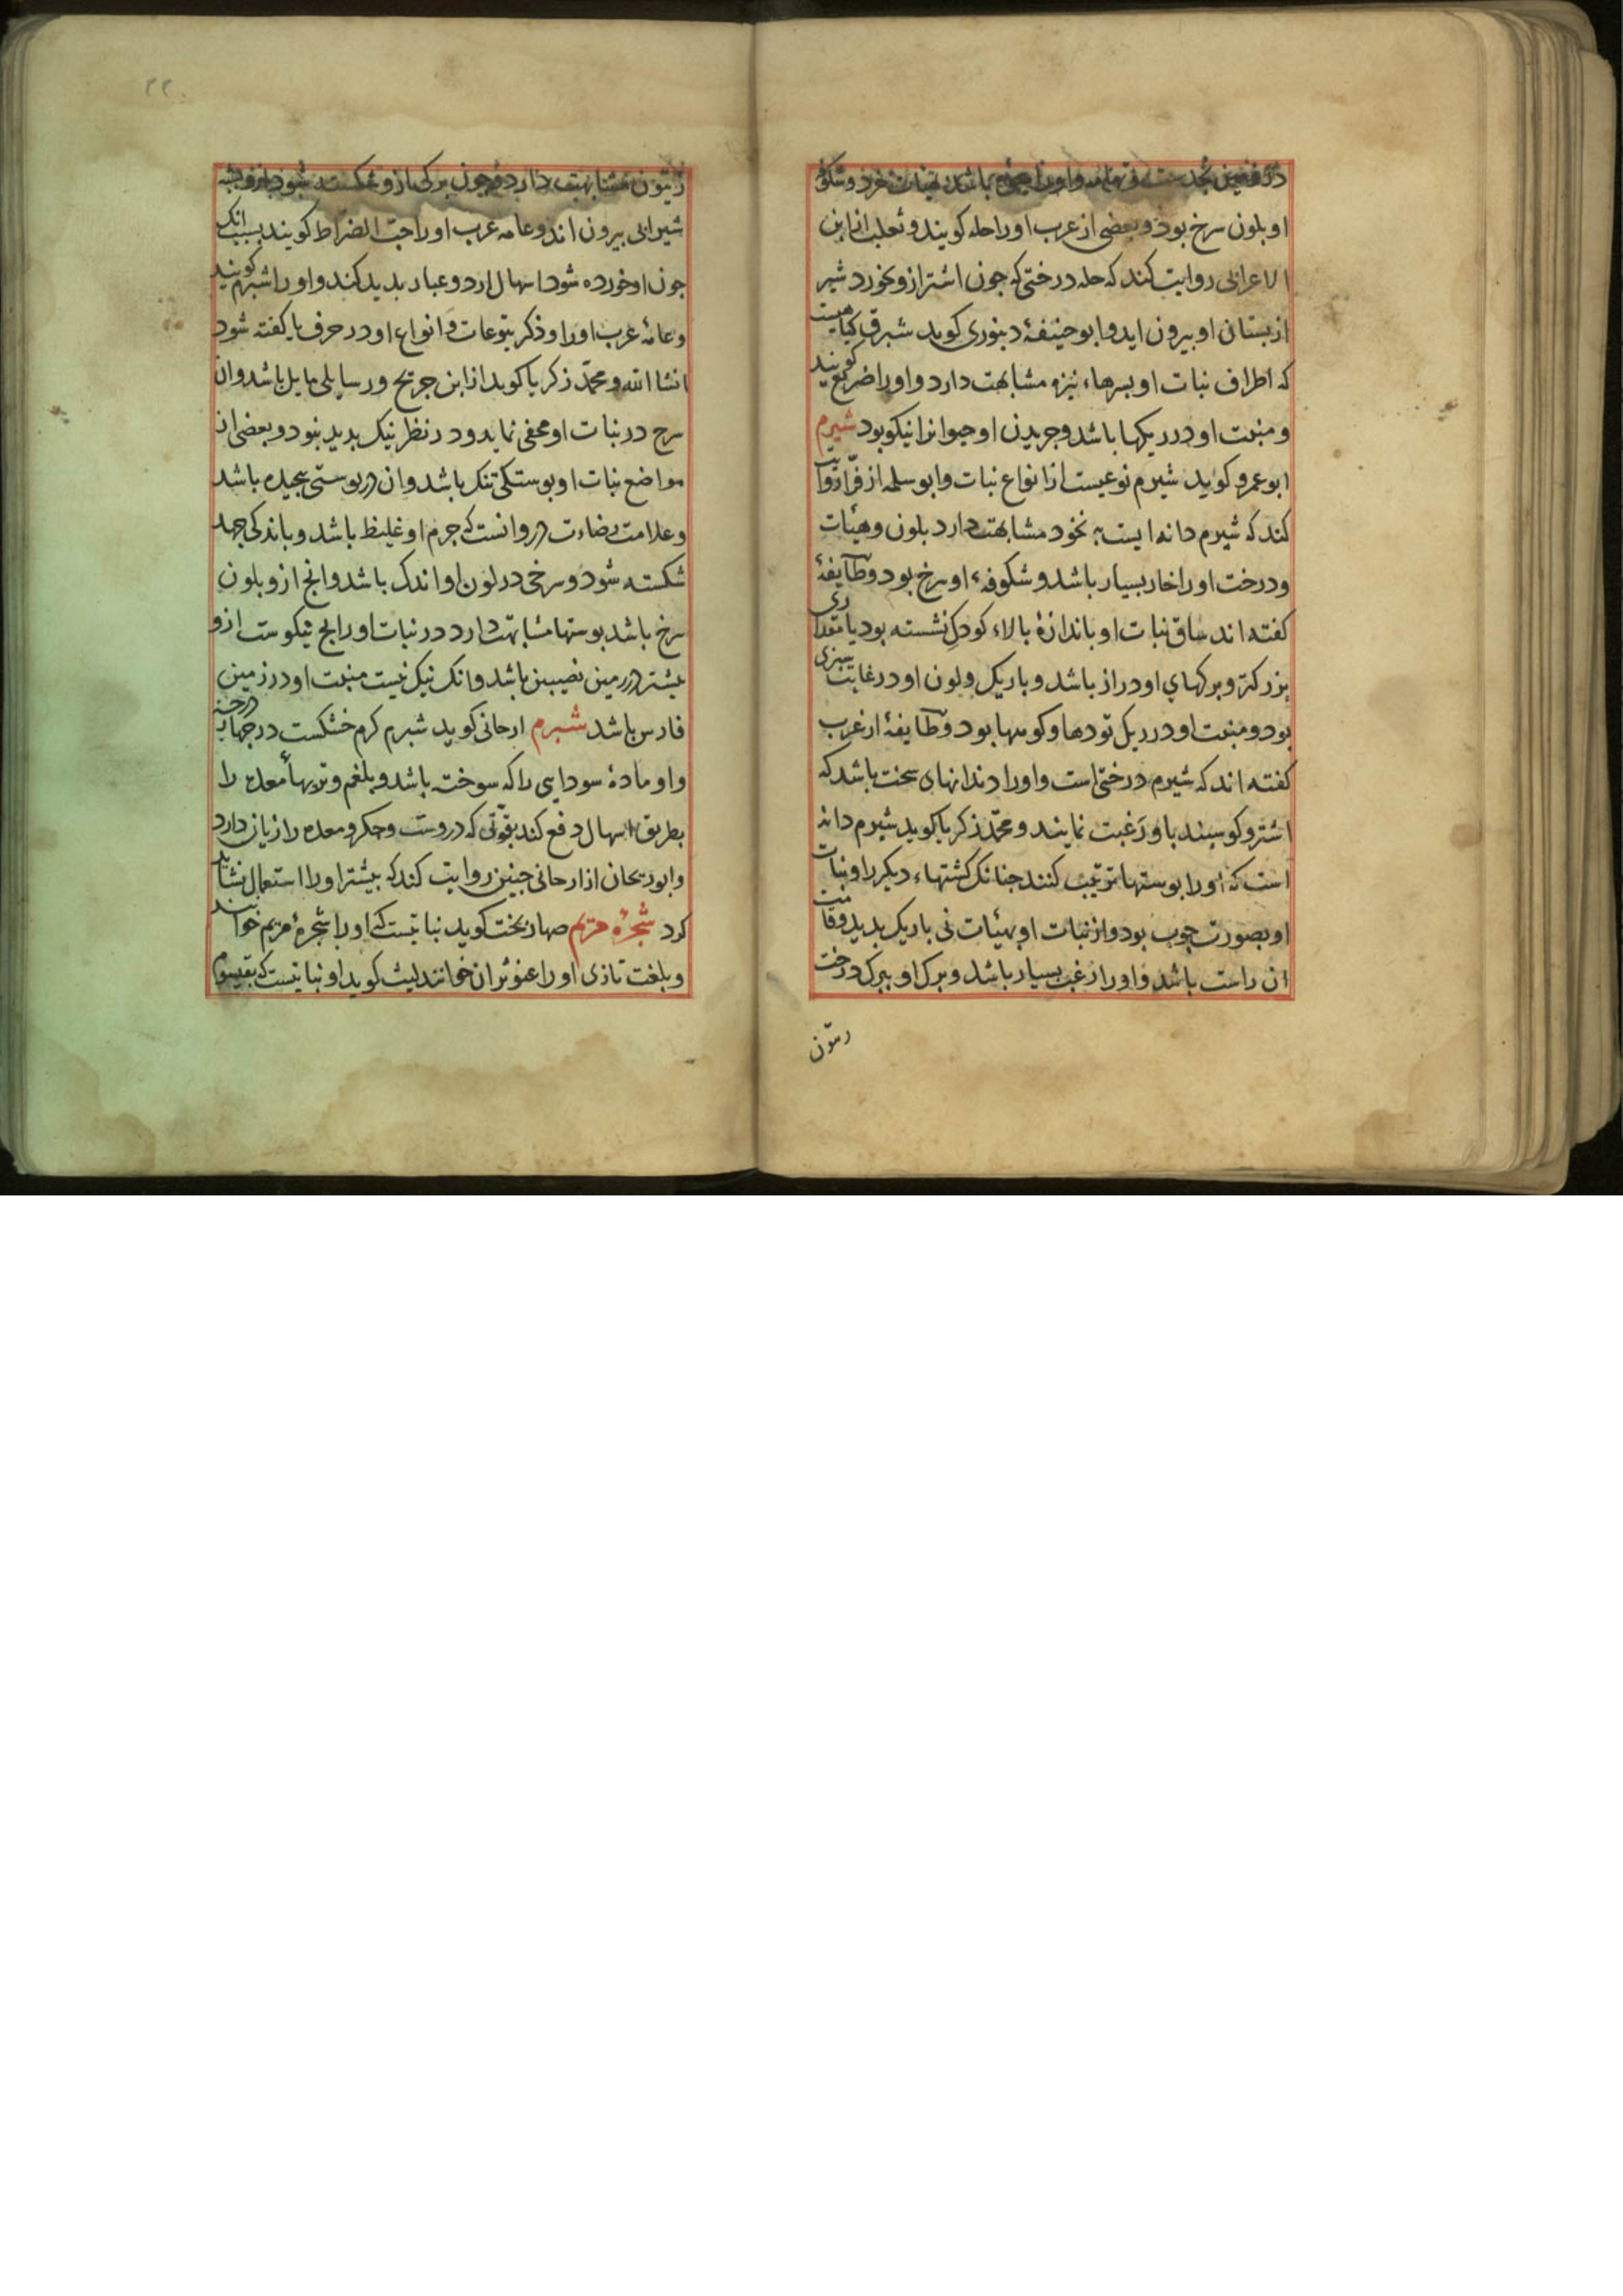 او بلون سرخ بود و بعضی از عرب او را حله کویند و ثعلب از ابن
الاعرابی روایت کند که حله درختی که جون اشتر ازو بخورد شیر
از بستان او بیرون اید و ابو حنیفهٔ دینوری کوید شبرق کیاهیست
که اطراف نبات او بسرهاء نیزه مشابهت دارد و اورا ضریع کویند
و منبت او در ریکها باشد و جریدن او حیوانرا نیکو بود شبرم
ابو عمرو کوید شبرم نوعیست از انواع نبات و ابو سلمه از فرّا روایت
کند که شبرم دانه ایست به نخود مشابهت دارد بلون و هیئات
و درخت او را خار بسیار باشد و شکوفهء او سرخ بود و طایفهٔ
کفته اند ساق نبات او باندازهٔ بالاء کودک نشسته بود یا مقداری
بزرکتر و برکهای او دراز باشد و باریک و لون او در غایت سبزی
بود و منبت او در ریک تودها و کوهها بود و طایفهٔ از عرب
کفته اند که شبرم درختی است و اورا دندانهای سخت باشد که
اشتر و کوسبند باو رغبت نمایند و محمّد زکریا کوید شبرم دانه
است که اورا بوستها ترتیب کنند جنانک کشتهاء دیکر را و نبات
او بصورت جوب بود و از نبات او بهیئات نی باریک بدید و قامت
ان راست باشد و اورا زغب بسیار باشد و برک او ببرک درخت
زیتون
زیتون مشابهت دارد و جون برک ازو شکسته شود ازو
شیرابی بیرون اند و عامه عرب اورا حب الضراط کویند بسبب انک
جون او خورده شود اسهال ارد و عبار بدید کند و اورا شبرم کویند
و عامهٔ عرب اورا و ذکر یتوعات و انواع او در حرف یا کفته شود
انشا الله و محمّد زکریا کوید از ابن جریح ور سایلی مایل باشد و ان
سرح در نبات او مخفی نماید و در نظر نیک بدید نبود و بعضی از
مواضع نبات او بوستکی تنک باشد و ان در بوستی بیجیده باشد
و علامت رضاءت در وانست که جرم او غلیظ باشد و باندکی جهد
شکسته شود و سرخی در لون او اندک باشد و انج ازو بلون
سرخ باشد ببوستها مشابهت دارد در نبات اورا انج نیکوست ازو
بیشتر در زمین نصیبین باشد و انک نیک نیست منبت او در زمین
فارس باشد شبرم ارجانی کوید شبرم کرم خشکست در جهارم درجه
و او مادهٔ سودایی را که سوخته باشد و بلغم و تریهاء معده را
بطریق اسهال دفع کند بقوّتی که دروست و جکر و معده را زیان دارد
و ابو ریحان از ارجانی جنین روایت کند که بیشتر اورا استعمال نشاید
کرد شجرهٔ مریم صهاربخت کوید نباتیست که اورا شجرهٔ مریم خوانند
و بلغت تازی اورا عنوثران خوانند لیث کوید او نباتیست که بقیسوم